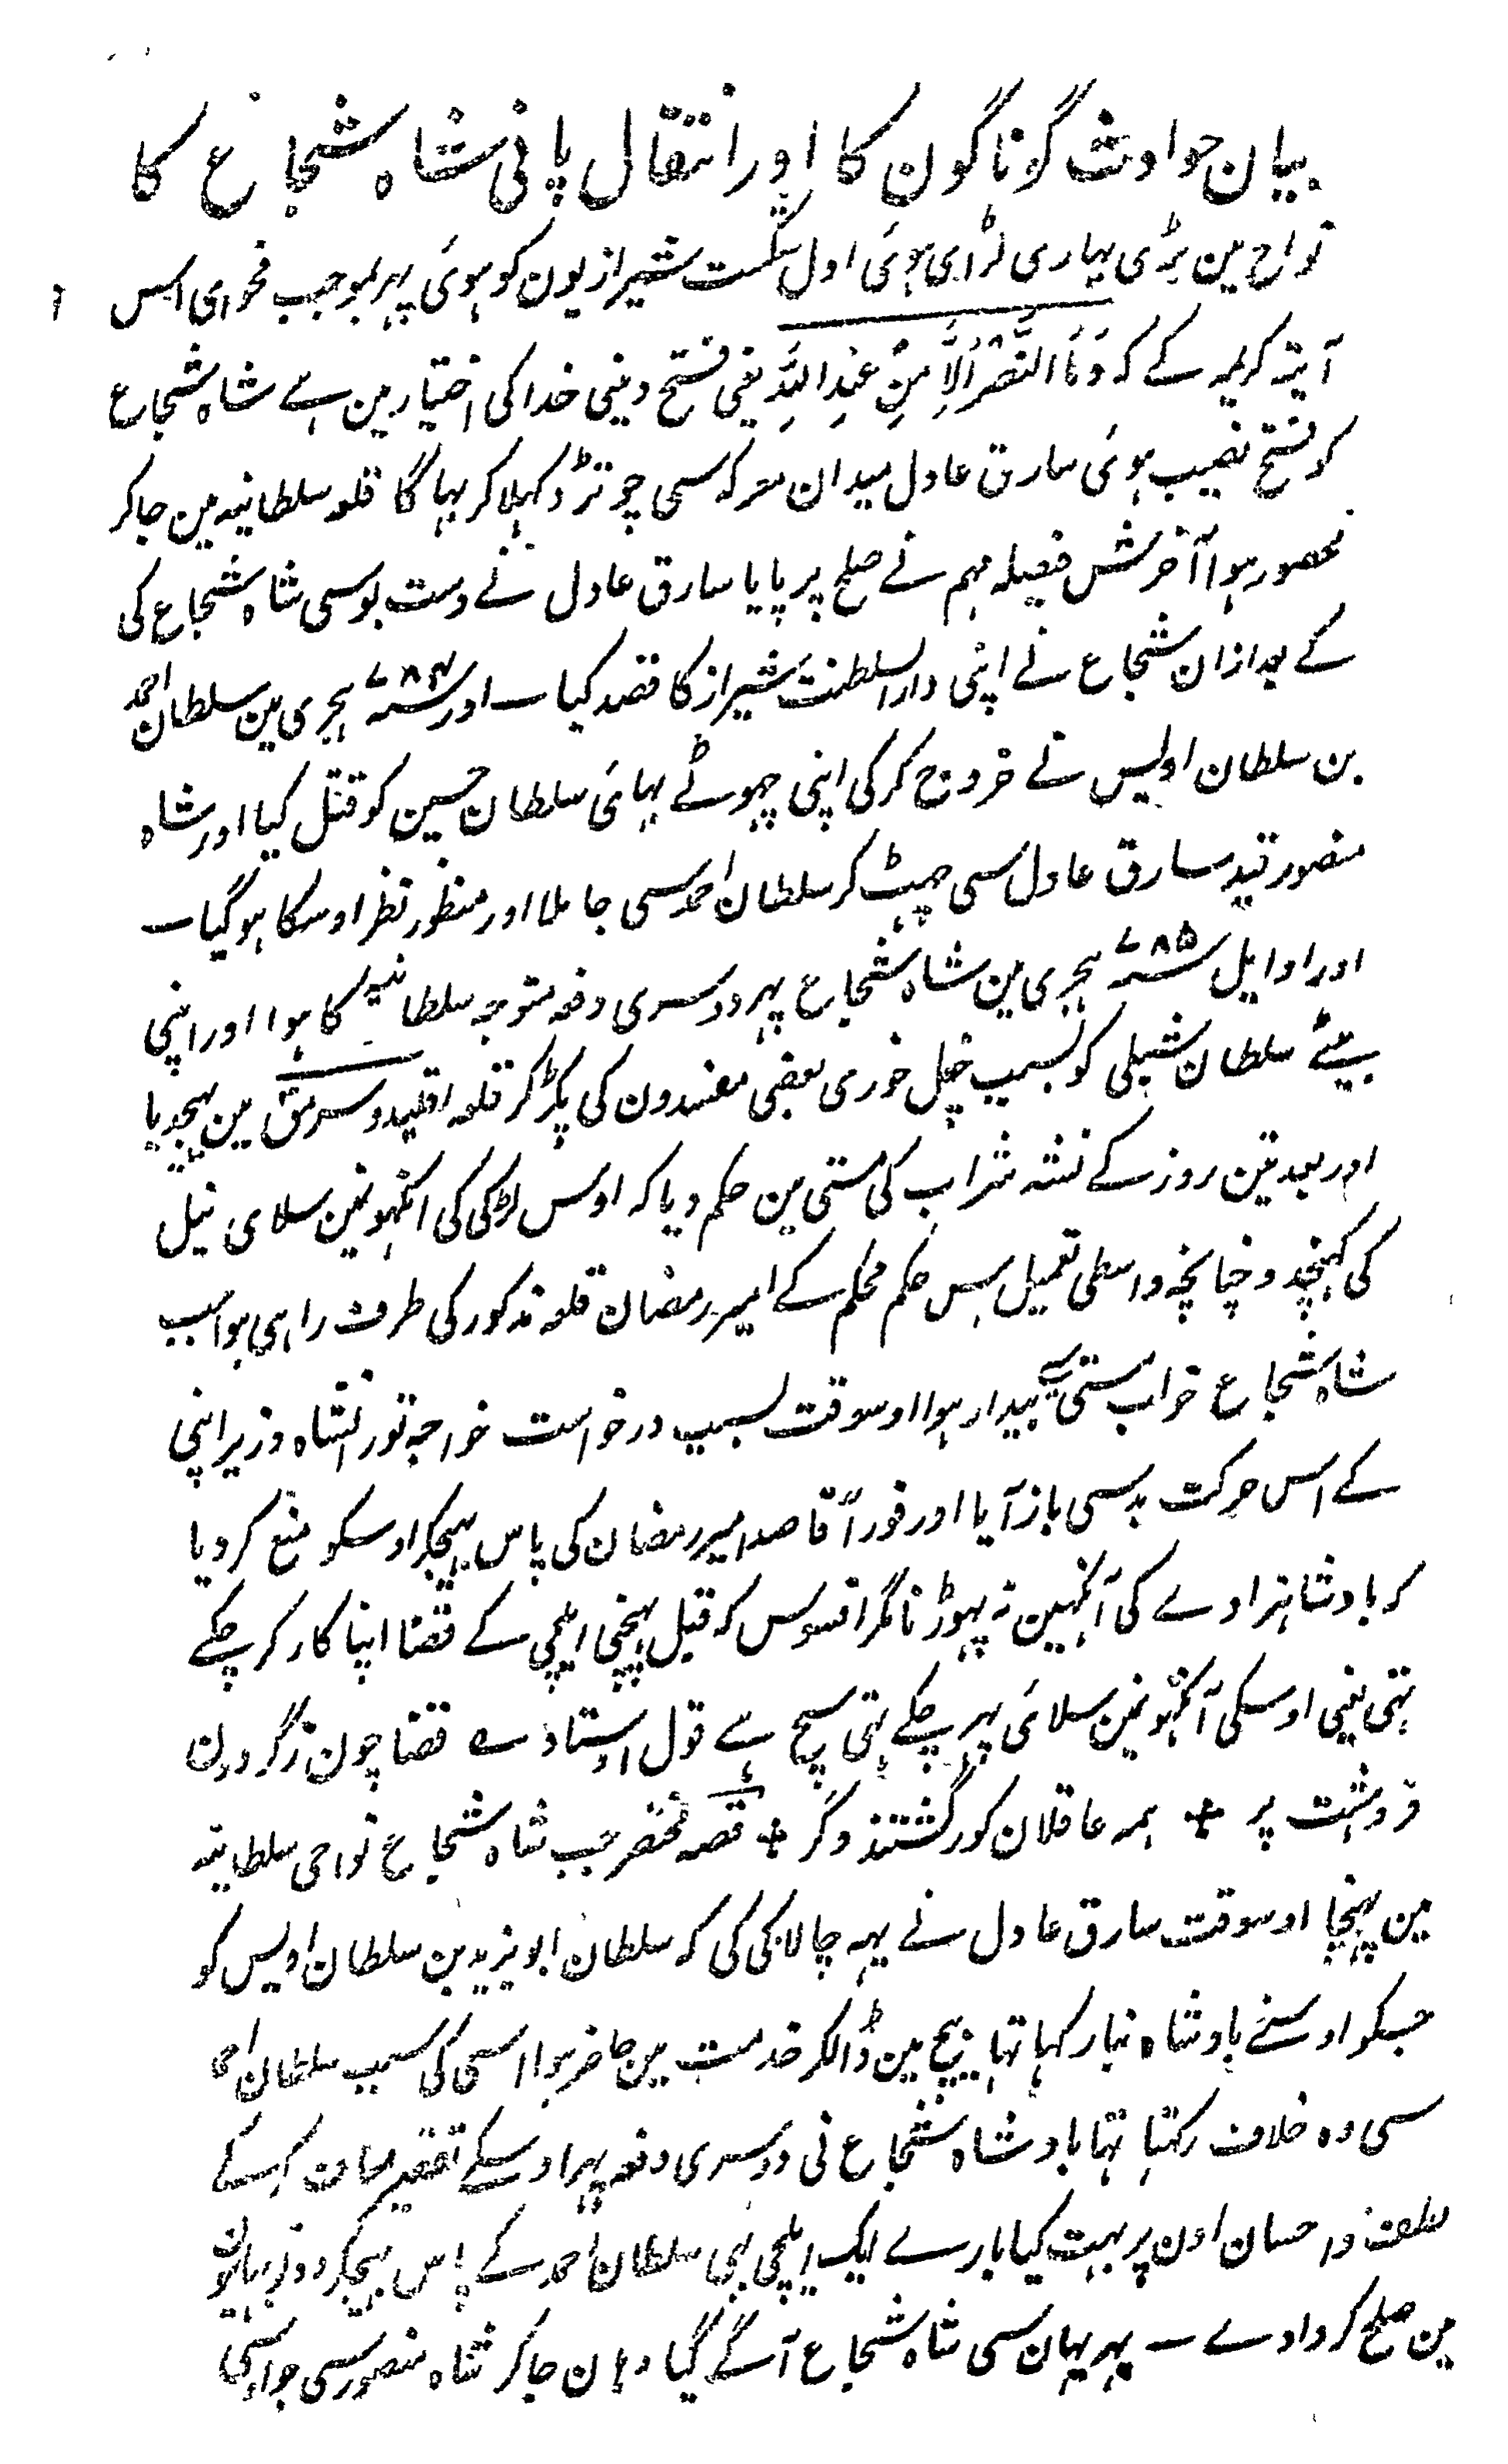 بیان حوادث گوناگون کا اور انتقال پانی شاہ شجاع کا
نواح مین بڑی بہاری لڑای ہوئی اول شکست شیرازیون کو ہوئی پہر بموجب فحوای اس
آیۃ کریمہ کے کہ وَمَا النَّصْرُ اِلَّا مِنْ عِنْدِ اللّٰہِ یعنی فتح دینی خدا کی اختیار مین ہے شاہ شجاع
کو فتح نصیب ہوئی سارق عادل میدان معرکہ سی چوتڑ دکہلا کر بہاگا قلعہ سلطانیہ مین جا کر
محصور ہوا آخرش فیصلہ مہم نے صلح پر پایا سارق عادل نے دست بوسی شاہ شجاع کی
کے بعد ازان شجاع نے اپنی دار السلطنت شیراز کا قصد کیا ــ اور سنہ ۷۸۴ ہجری مین سلطان احمد
بن سلطان اویس نے خروج کر کی اپنی چہوٹے بہائی سلطان حسین کو قتل کیا اور شاہ
منصور قید سارق عادل سی چہٹ کر سلطان احمد سی جا ملا اور منظور نظر اوسکا ہو گیا ــ
اور اوایل سنہ ۷۸۵ ہجری مین شاہ شجاع پہر دوسری دفعہ متوجہ سلطانیہ کا ہوا اور اپنی
بیٹے سلطان شبلی کو بسبب چغل خوری بعضی مفسدون کی پکڑ کر قلعہ اقلید و سرمق مین بہیجدیا
اور بعد تین روز کے نشہ شراب کی مستی مین حکم دیا کہ اوس لڑکی کی انکہونمین سلای نیل
کی کہنچدو چنانچہ واسطی تعمیل اس حکم محکم کے امیر رمضان قلعہ مذکور کی طرف راہی ہوا جب
شاہ شجاع خواب مستی سے بیدار ہوا اوسوقت بسبب درخواست خواجہ تورانشاہ وزیر اپنی
کے اس حرکت بد سی باز آیا اور فوراً قاصد امیر رمضان کی پاس بہیجکر اوسکو منع کر دیا
کہ بادشاہزادے کی آنکہین نہ پہوڑنا مگر افسوس کہ قبل پہنچنی ایلچی کے قضا اپنا کار کر چکے
تہی یعنی اوسکی آنکہونمین سلائی پہر چکے تہی سچ ہے قول اوستاد ے قضا چون ز گردون
فروہشت پر + ہمہ عاقلان کور گشتند و کر + قصہ مختصر جب شاہ شجاع نواحی سلطانیہ
مین پہنچا اوسوقت سارق عادل نے یہہ چالاکی کی کہ سلطان ابو یزید بن سلطان اویس کو
جسکو اوسنے بادشاہ بنا رکہا تہا بیچ مین ڈالکر خدمت مین حاضر ہوا اسی کی سبب سلطان
سی وہ خلاف رکہتا تہا بادشاہ شجاع نی دوسری دفعہ پہر اوسکے تقصیر معاف کر کے
لطف و احسان اون پر بہت کیا بارے ایک ایلچی بہی سلطان احمد کے پاس بہیجکر دونو بہائیون
مین صلح کروا دے ــ پہر یہان سی شاہ شجاع آگے گیا وہان جا کر شاہ منصور سی جو